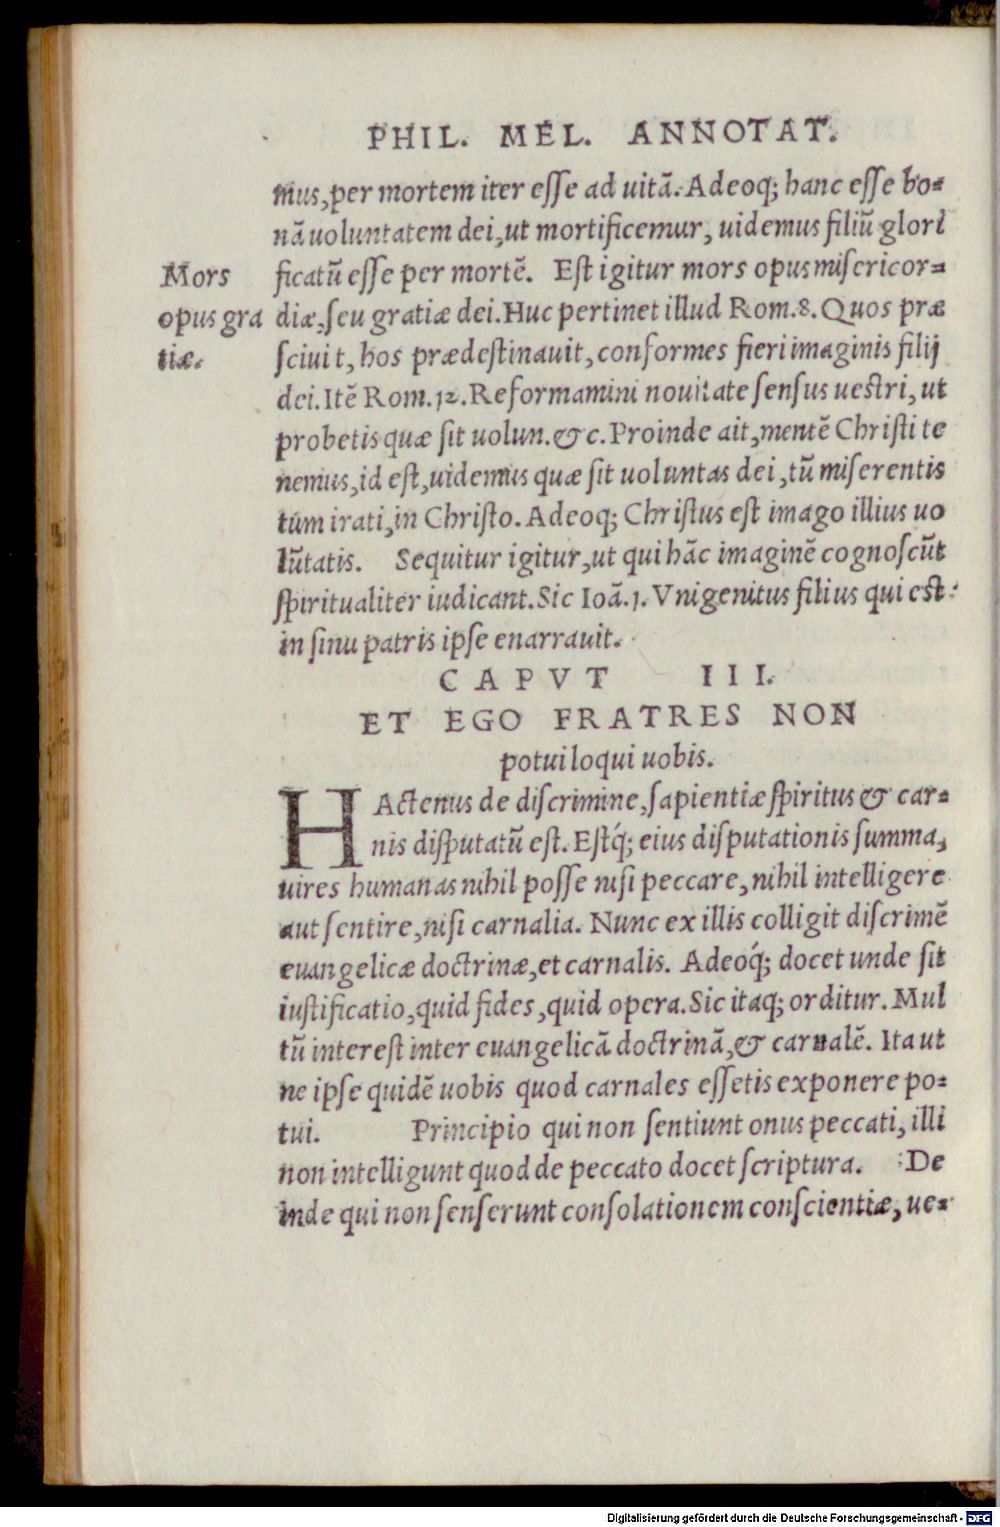 PHIL. MEL. ANNOTAT.
mus, per mortem iter esse ad uitā. Adeoq; hanc esse bo-
nā uoluntatem dei, ut mortificemur, uidemus filiū glori
ficatū esse per mortē. Est igitur mors opus misericor-
diæ, seu gratiæ dei. Huc pertinet illud Rom. 8. Quos præ
sciuit, hos prædestinauit, conformes fieri imaginis filij
dei. Itē Rom. 12. Reformamini nouitate sensus uestri, ut
probetis quæ sit uolun. &c. Proinde ait, mentē Christi te
nemus, id est, uidemus quæ sit uoluntas dei, tū miserentis
tum irati, in Christo. Adeoq; Christus est imago illius uo
lūtatis. Sequitur igitur, ut qui hāc imaginē cognoscūt
spiritualiter iudicant. Sic Ioā. 1. Vnigenitus filius qui est
in sinu patris ipse enarrauit.
Mors
opus gra
tiæ.
CAPVT III.
ET EGO FRATRES NON
potui loqui uobis.
HActenus de discrimine, sapientiæ spiritus & car-
nis disputatū est. Estq́; eius disputationis summa,
uires humanas nihil posse nisi peccare, nihil intelligere
aut sentire, nisi carnalia. Nunc ex illis colligit discrimē
euangelicæ doctrinæ, et carnalis. Adeoq́; docet unde sit
iustificatio, quid fides, quid opera. Sic itaq; orditur. Mul
tū interest inter euangelicā doctrinā, & carnalē. Ita ut
ne ipse quidē uobis quod carnales essetis exponere po-
tui. Principio qui non sentiunt onus peccati, illi
non intelligunt quod de peccato docet scriptura. De
inde qui non senserunt consolationem conscientiæ, ue-
Digitalisierung gefördert durch die Deutsche Forschungsgemeinschaft - DFG